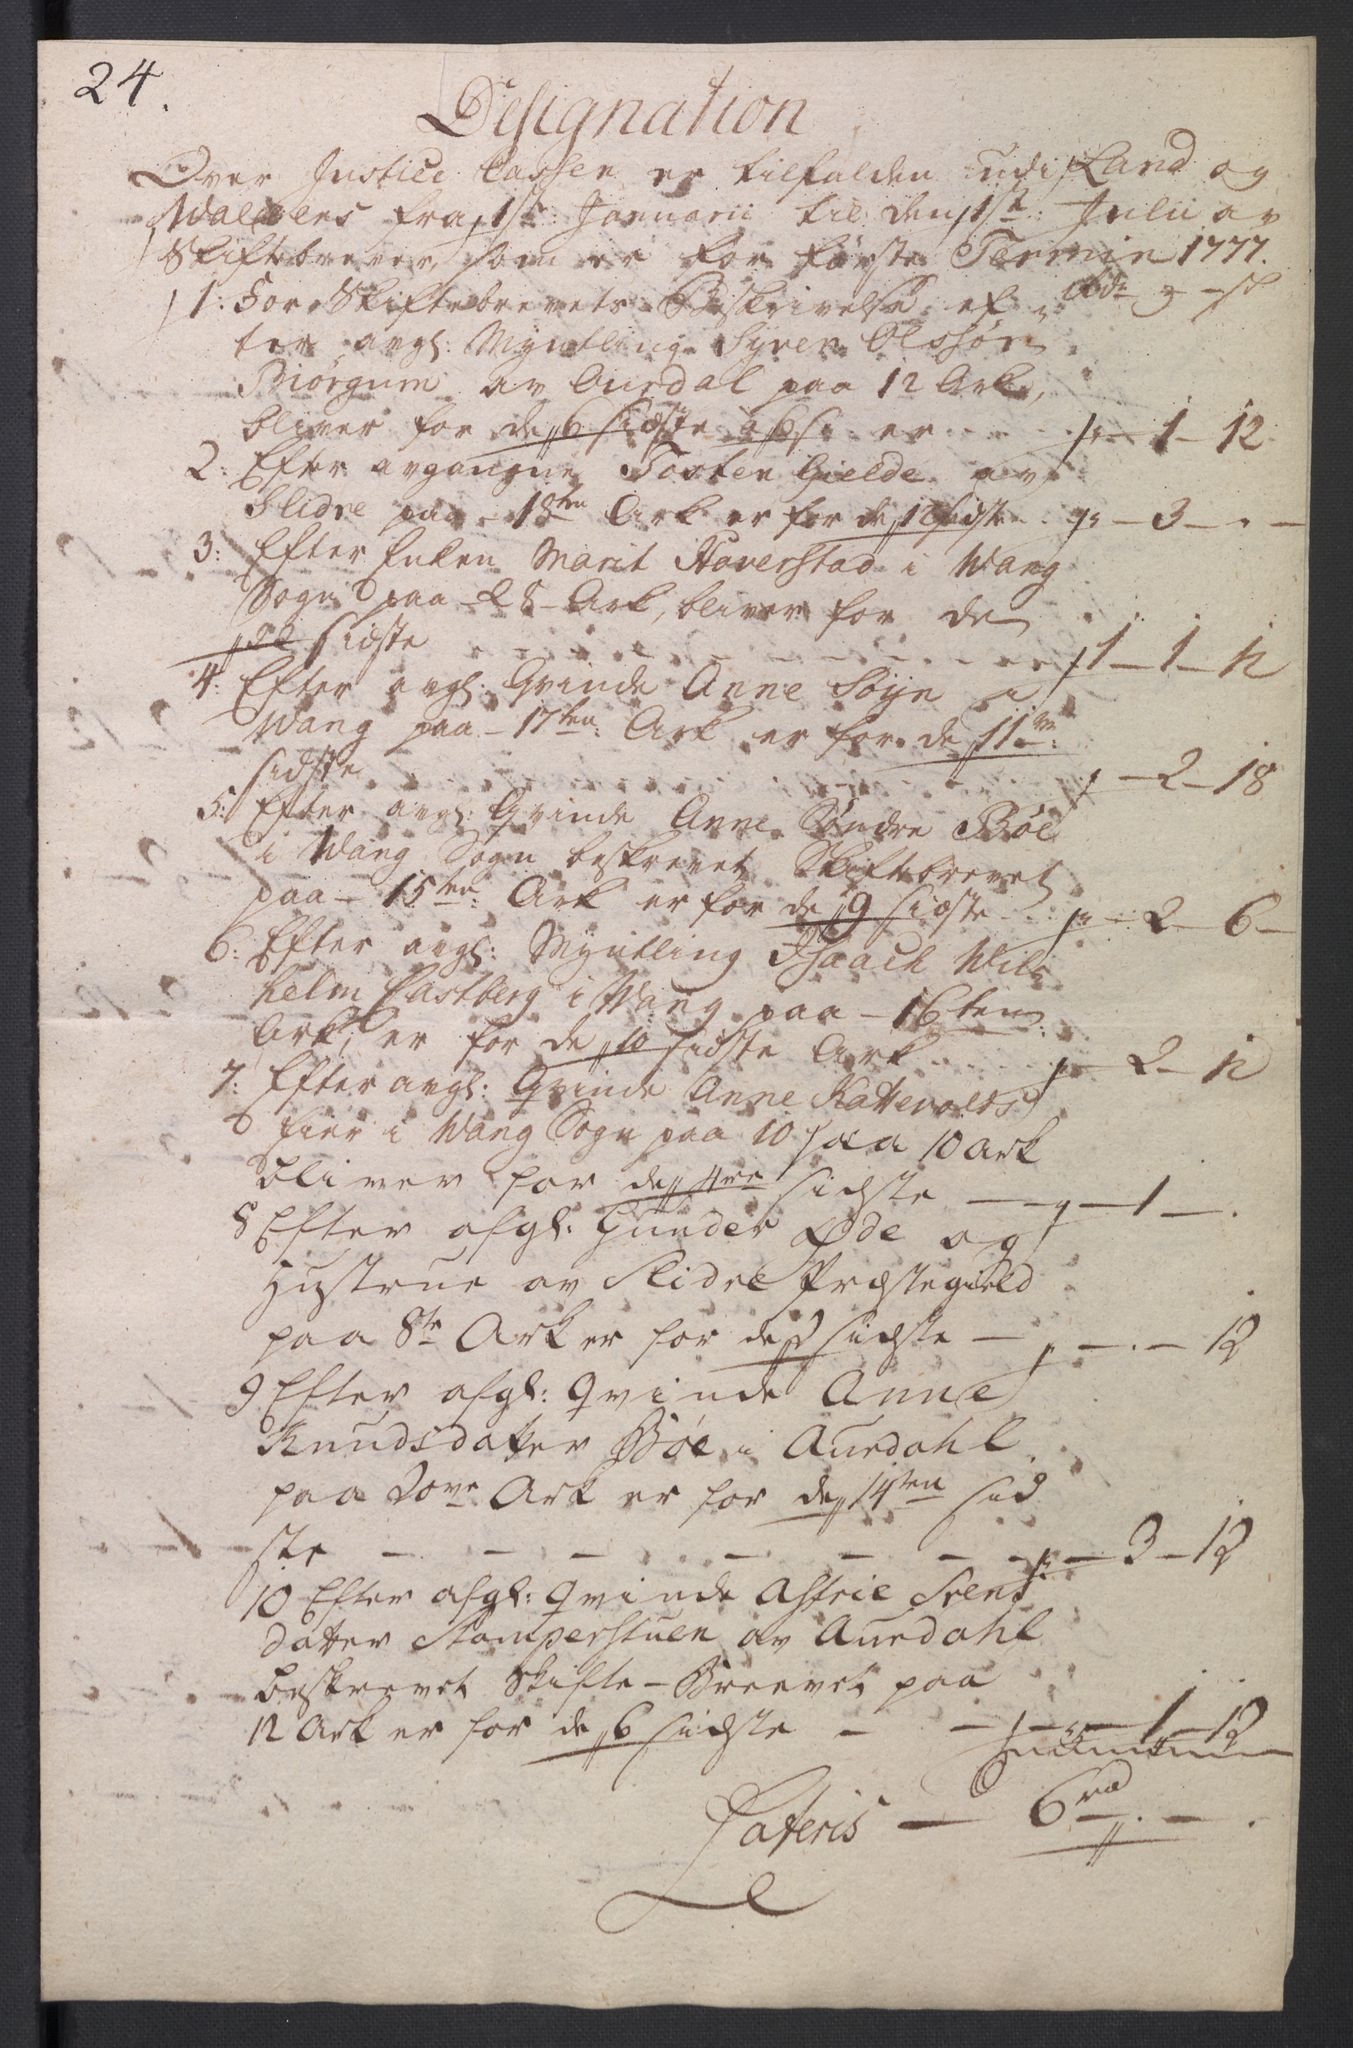 24.
Designation
Over Justici Cassen er tilfalden udi Land og
Walders fra 1st: Januarii til den 1st: Julii av
Skiftebrever, som er for første Termin 1777.
1: For Skiftebrevets Beskrivelse ef=
ter avgl: Myndling Syver Olssøn
Biørgum av Aurdal paa 12 Ark,
bliver for de 6 sidste er 1 - 12
2: Efter avgangne Tosten Gielde av
Slidre paa - 18ten Ark er for de 12 sidste - 3 - . -
3: Efter Enken Marit Haverstad i Wang
Sogn paa - 28 - Ark, bliver for de
22 sidste 1 - 1 - 12
4: Efter avgl: Qvinde Anne Søyn i
Wang paa - 17ten: Ark er for de 11ve:
sidste - 2 - 18
5: Efter avgl: Qvinde Anne Søndre Bøe
i Wang Sogn beskrevet Skiftebrevet
paa - 15ten: Ark er for de 9 sidste - 2 - 6 -
6: Efter avgl: Myndling Isaach Wil=
helm Castberg i Wang paa - 16ten:
Ark, er for de 10 sidste Ark - 2 - 12
7: Efter avgl: Qvinde Anne Kattevolds
eier i Wang Sogn paa 10 paa 10 ark
bliver for de 4re sidste - 1 - .
8 Efter afgl: Gunder Øde og
Hustrue av Slidre Præstegield
paa 8te Ark er for de 2 sidste - . - 12
9 Efter afgl: Qvinde Anne
Knudsdatter Bøe i Aurdahl
paa 20ve Ark er for de 14ten sid
ste - - - - - - - 3 - 12
10 Efter afgl: Qvinde Astrie Svens
datter Stamperstuen av Aurdahl
beskrevet Skifte-Breevet paa
12 Ark er for de 6 sidste - - 1 - 12
Lateris - 6rd - . - .